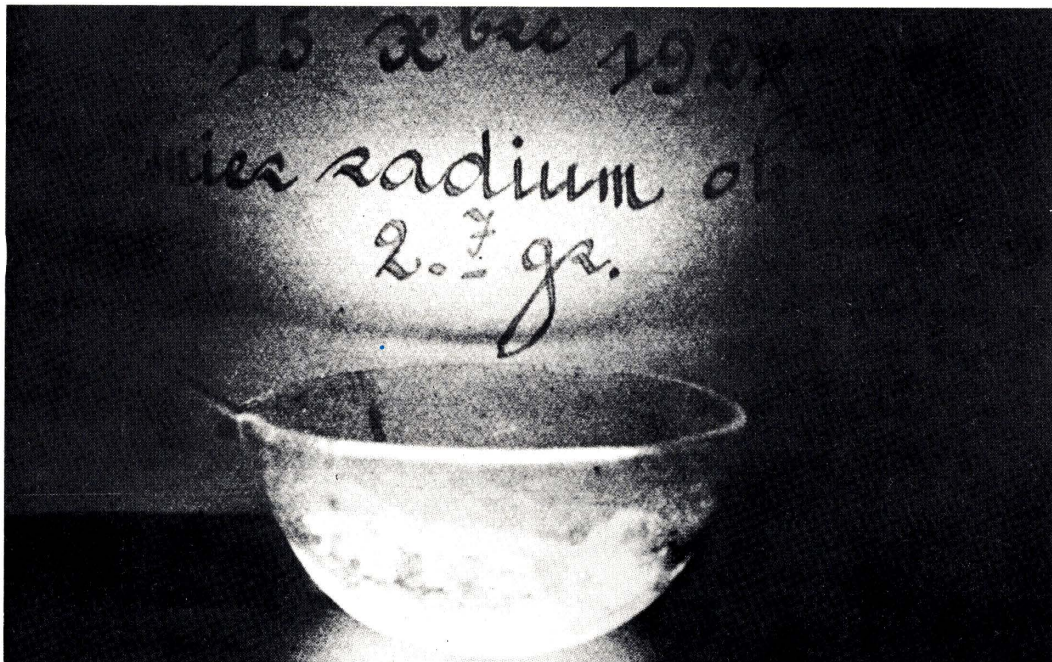 15 Xbre 192
radium
2.7 gr.